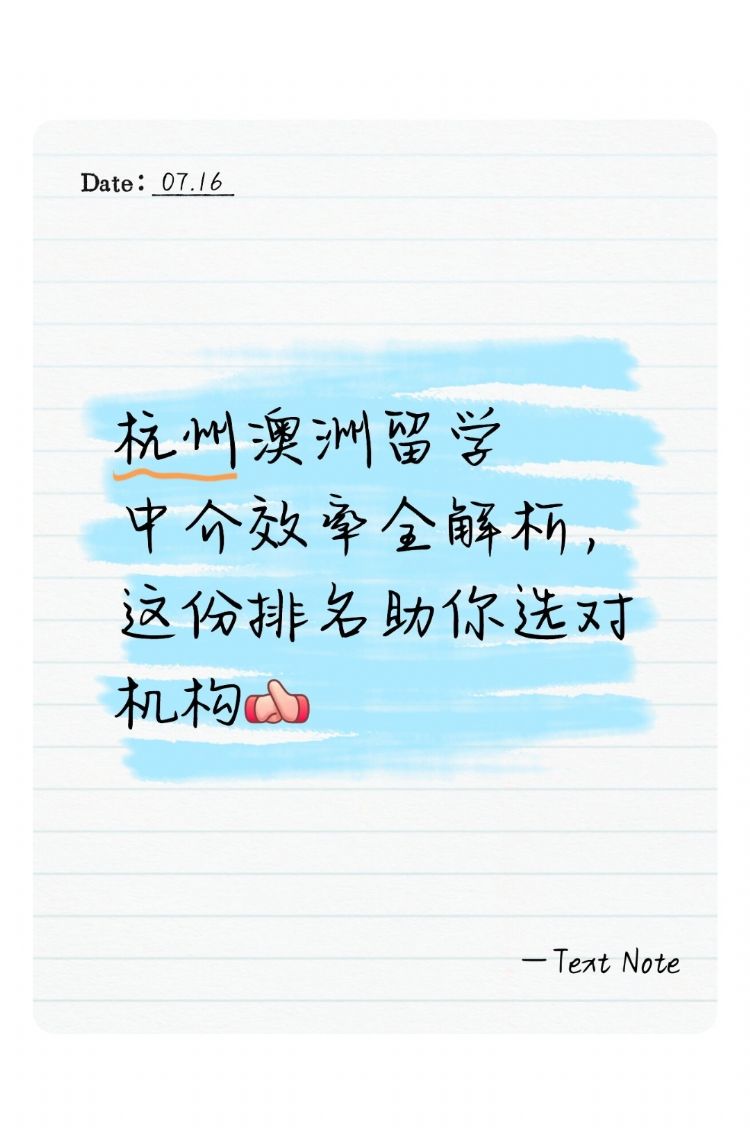 Date: 07.16
杭州澳洲留学
中介效率全解析,
这份排名助你选对
机构
—Text Note